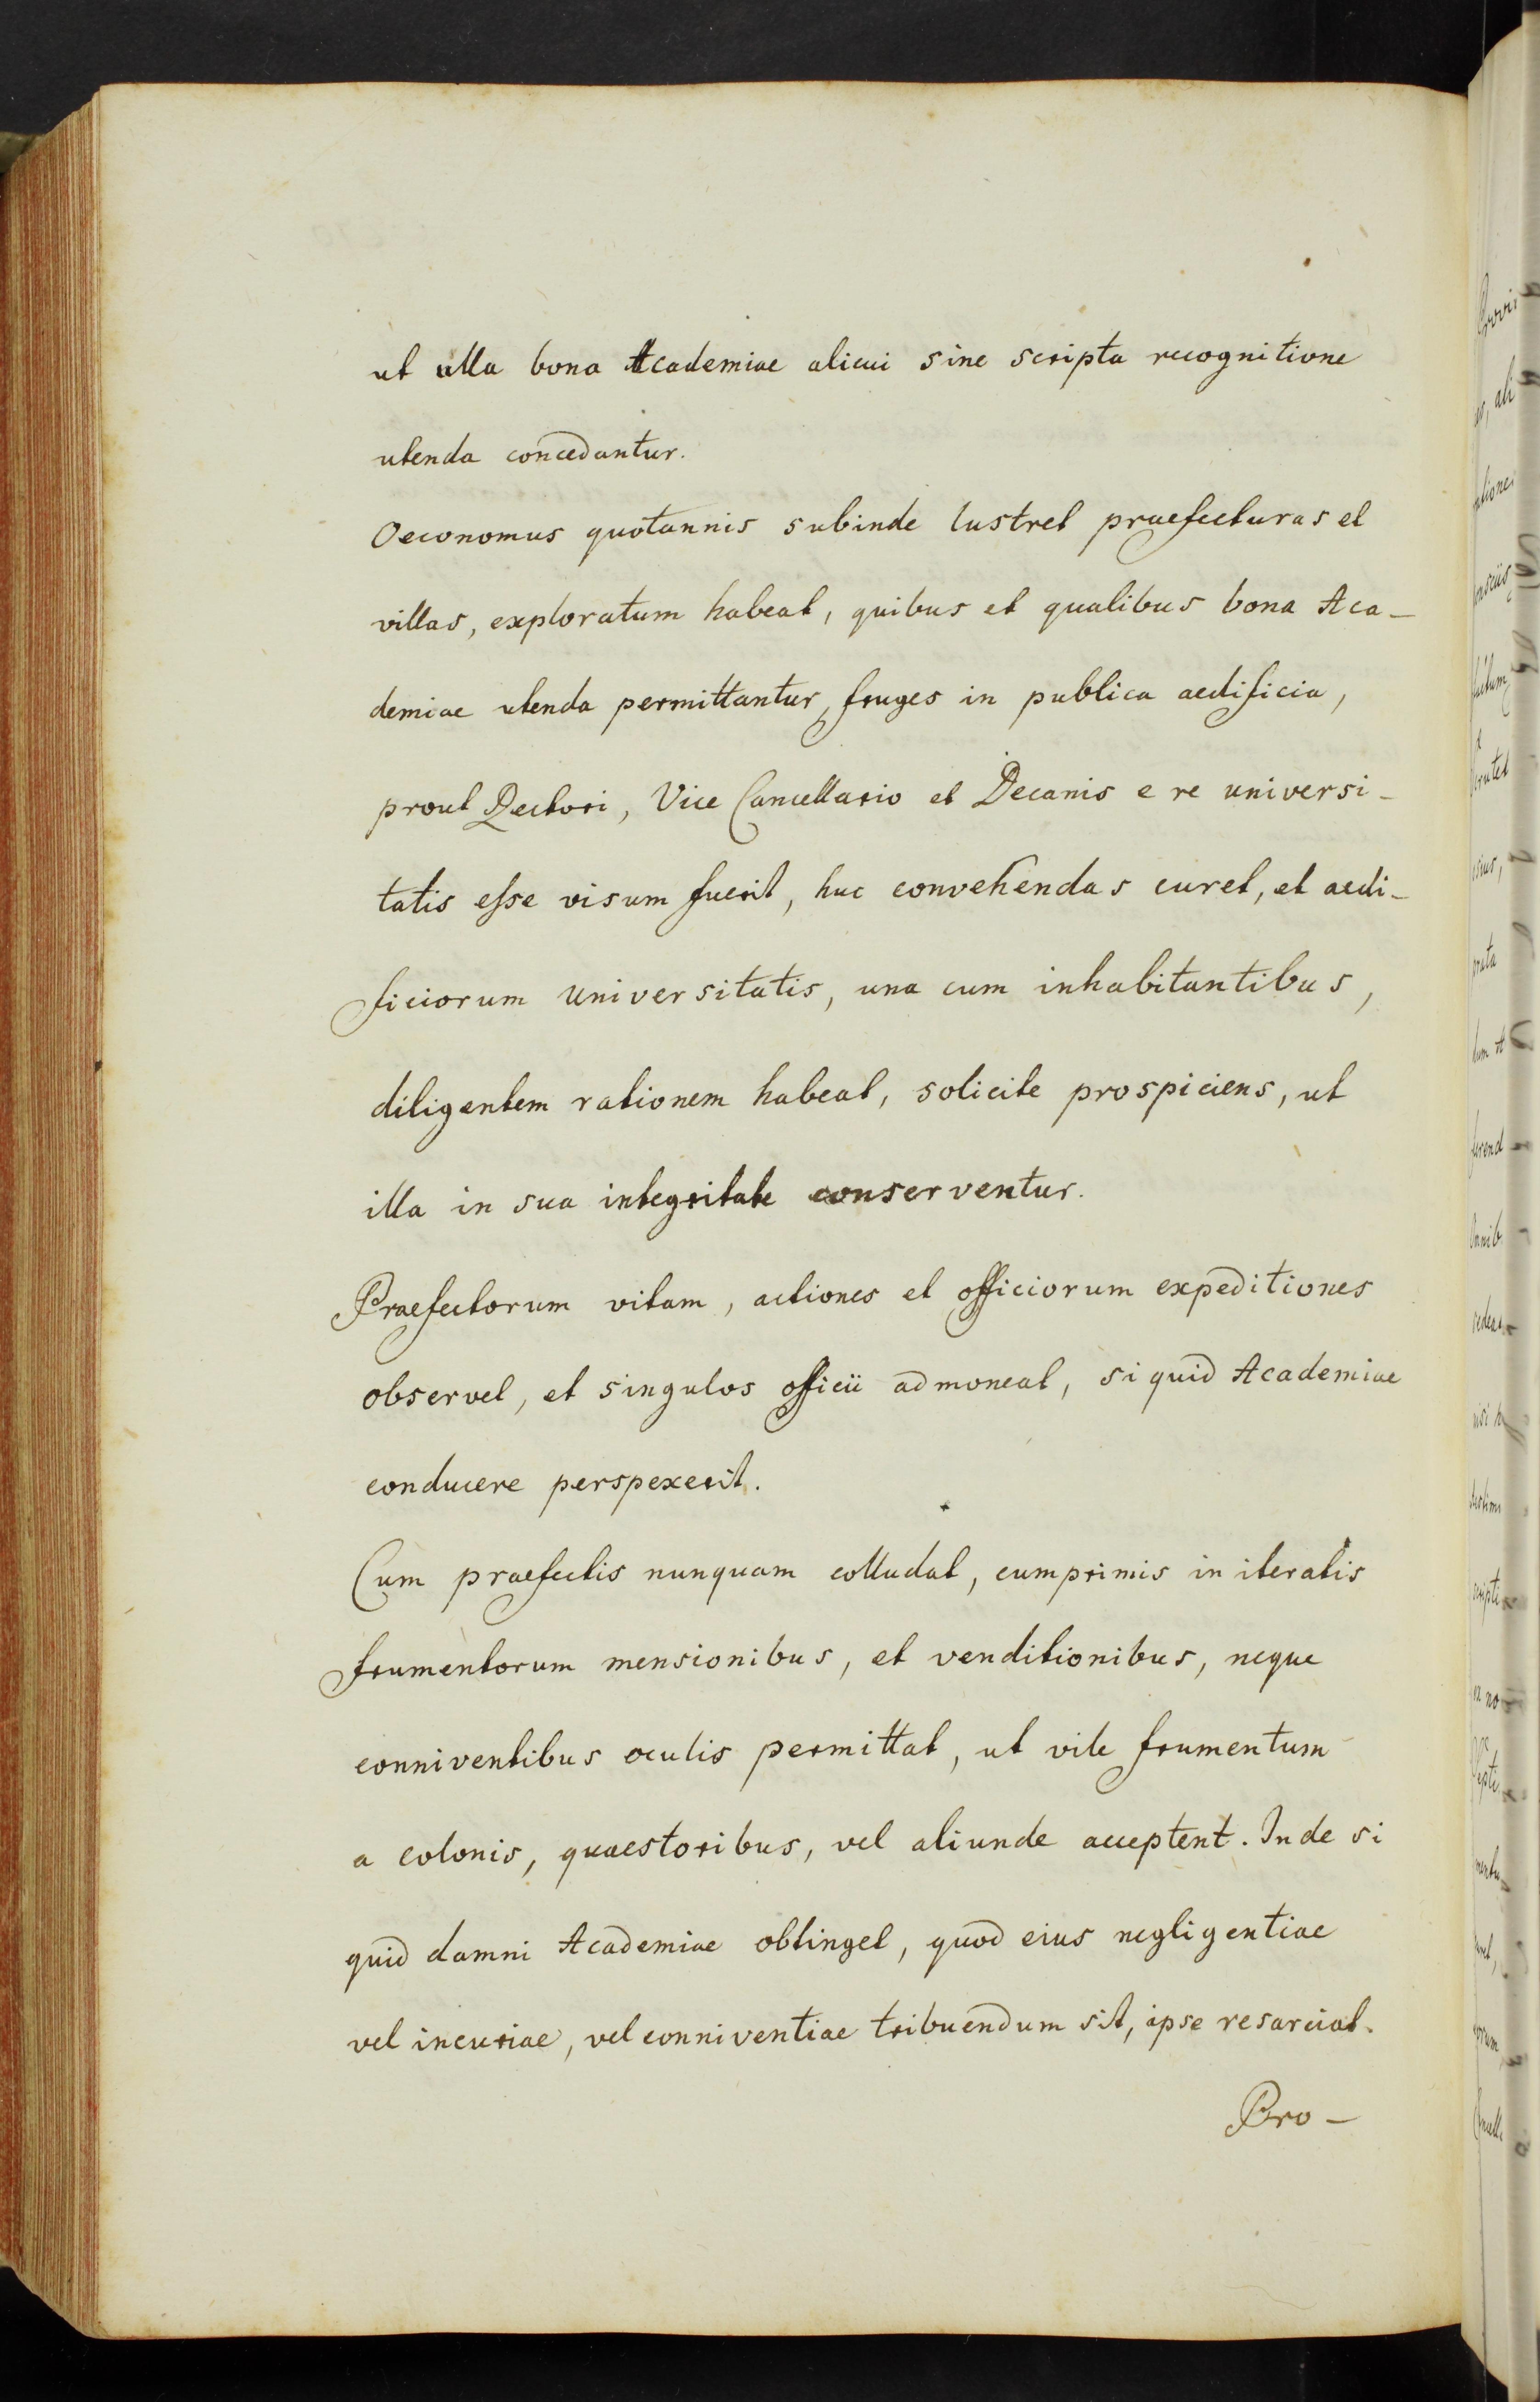 ut ulla bona Academiae alicui sine scripta recognitione
utenda concedantur.
Oeconomus quotannis subinde lustret praefecturas et
villas, exploratum habeat, quibus et qualibus bona Aca-
demiae utenda permittantur, fruges in publica aedificia,
prout Rectori, Vice Cancellario et Decanis e re universi-
tatis esse visum fuerit, huc convehendas curet, et aedi-
ficiorum universitatis, una cum inhabitantibus,
diligentem rationem habeat, solicite prospiciens, ut
illa in sua integritate conserventur.
Praefectorum vitam, actiones et officiorum expeditiones
observet, et singulos officii admoneat, si quid Academiae
conducere perspexerit.
Cum praefectis nunquam colludat, cumprimis in iteratis
frumentorum mensionibus, et venditionibus, neque
conniventibus oculis permittat, ut vile frumentum
a colonis, quaestoribus, vel aliunde acceptent. Inde si
quid damni Academiae obtinget, quod eius negligentiae
vel incuriae, vel conniventiae tribuendum sit, ipse resarciat.
Pro-